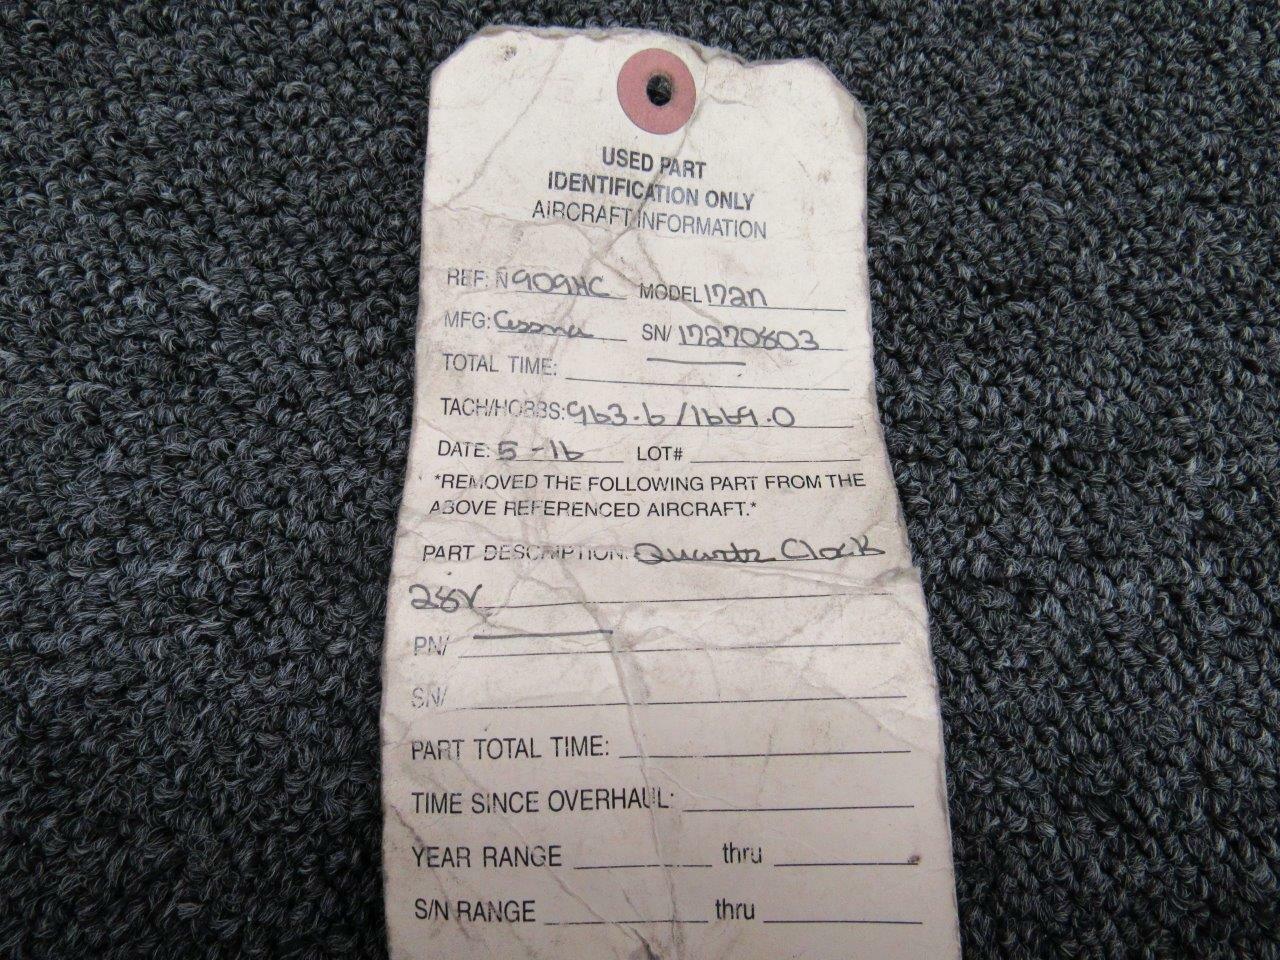 USED PART
IDENTIFICATION ONLY
AIRCRAFT INFORMATION
REF: N909HC MODEL 172n
MFG: Cessna SN/ 17270803
TOTAL TIME:
TACH/HOBBS: 963.6 / 1669.0
DATE: 5-16 LOT#
*REMOVED THE FOLLOWING PART FROM THE
ABOVE REFERENCED AIRCRAFT.*
PART DESCRIPTION: Quartz Clock
28V
PN/
SN/
PART TOTAL TIME:
TIME SINCE OVERHAUL:
YEAR RANGE thru
S/N RANGE thru